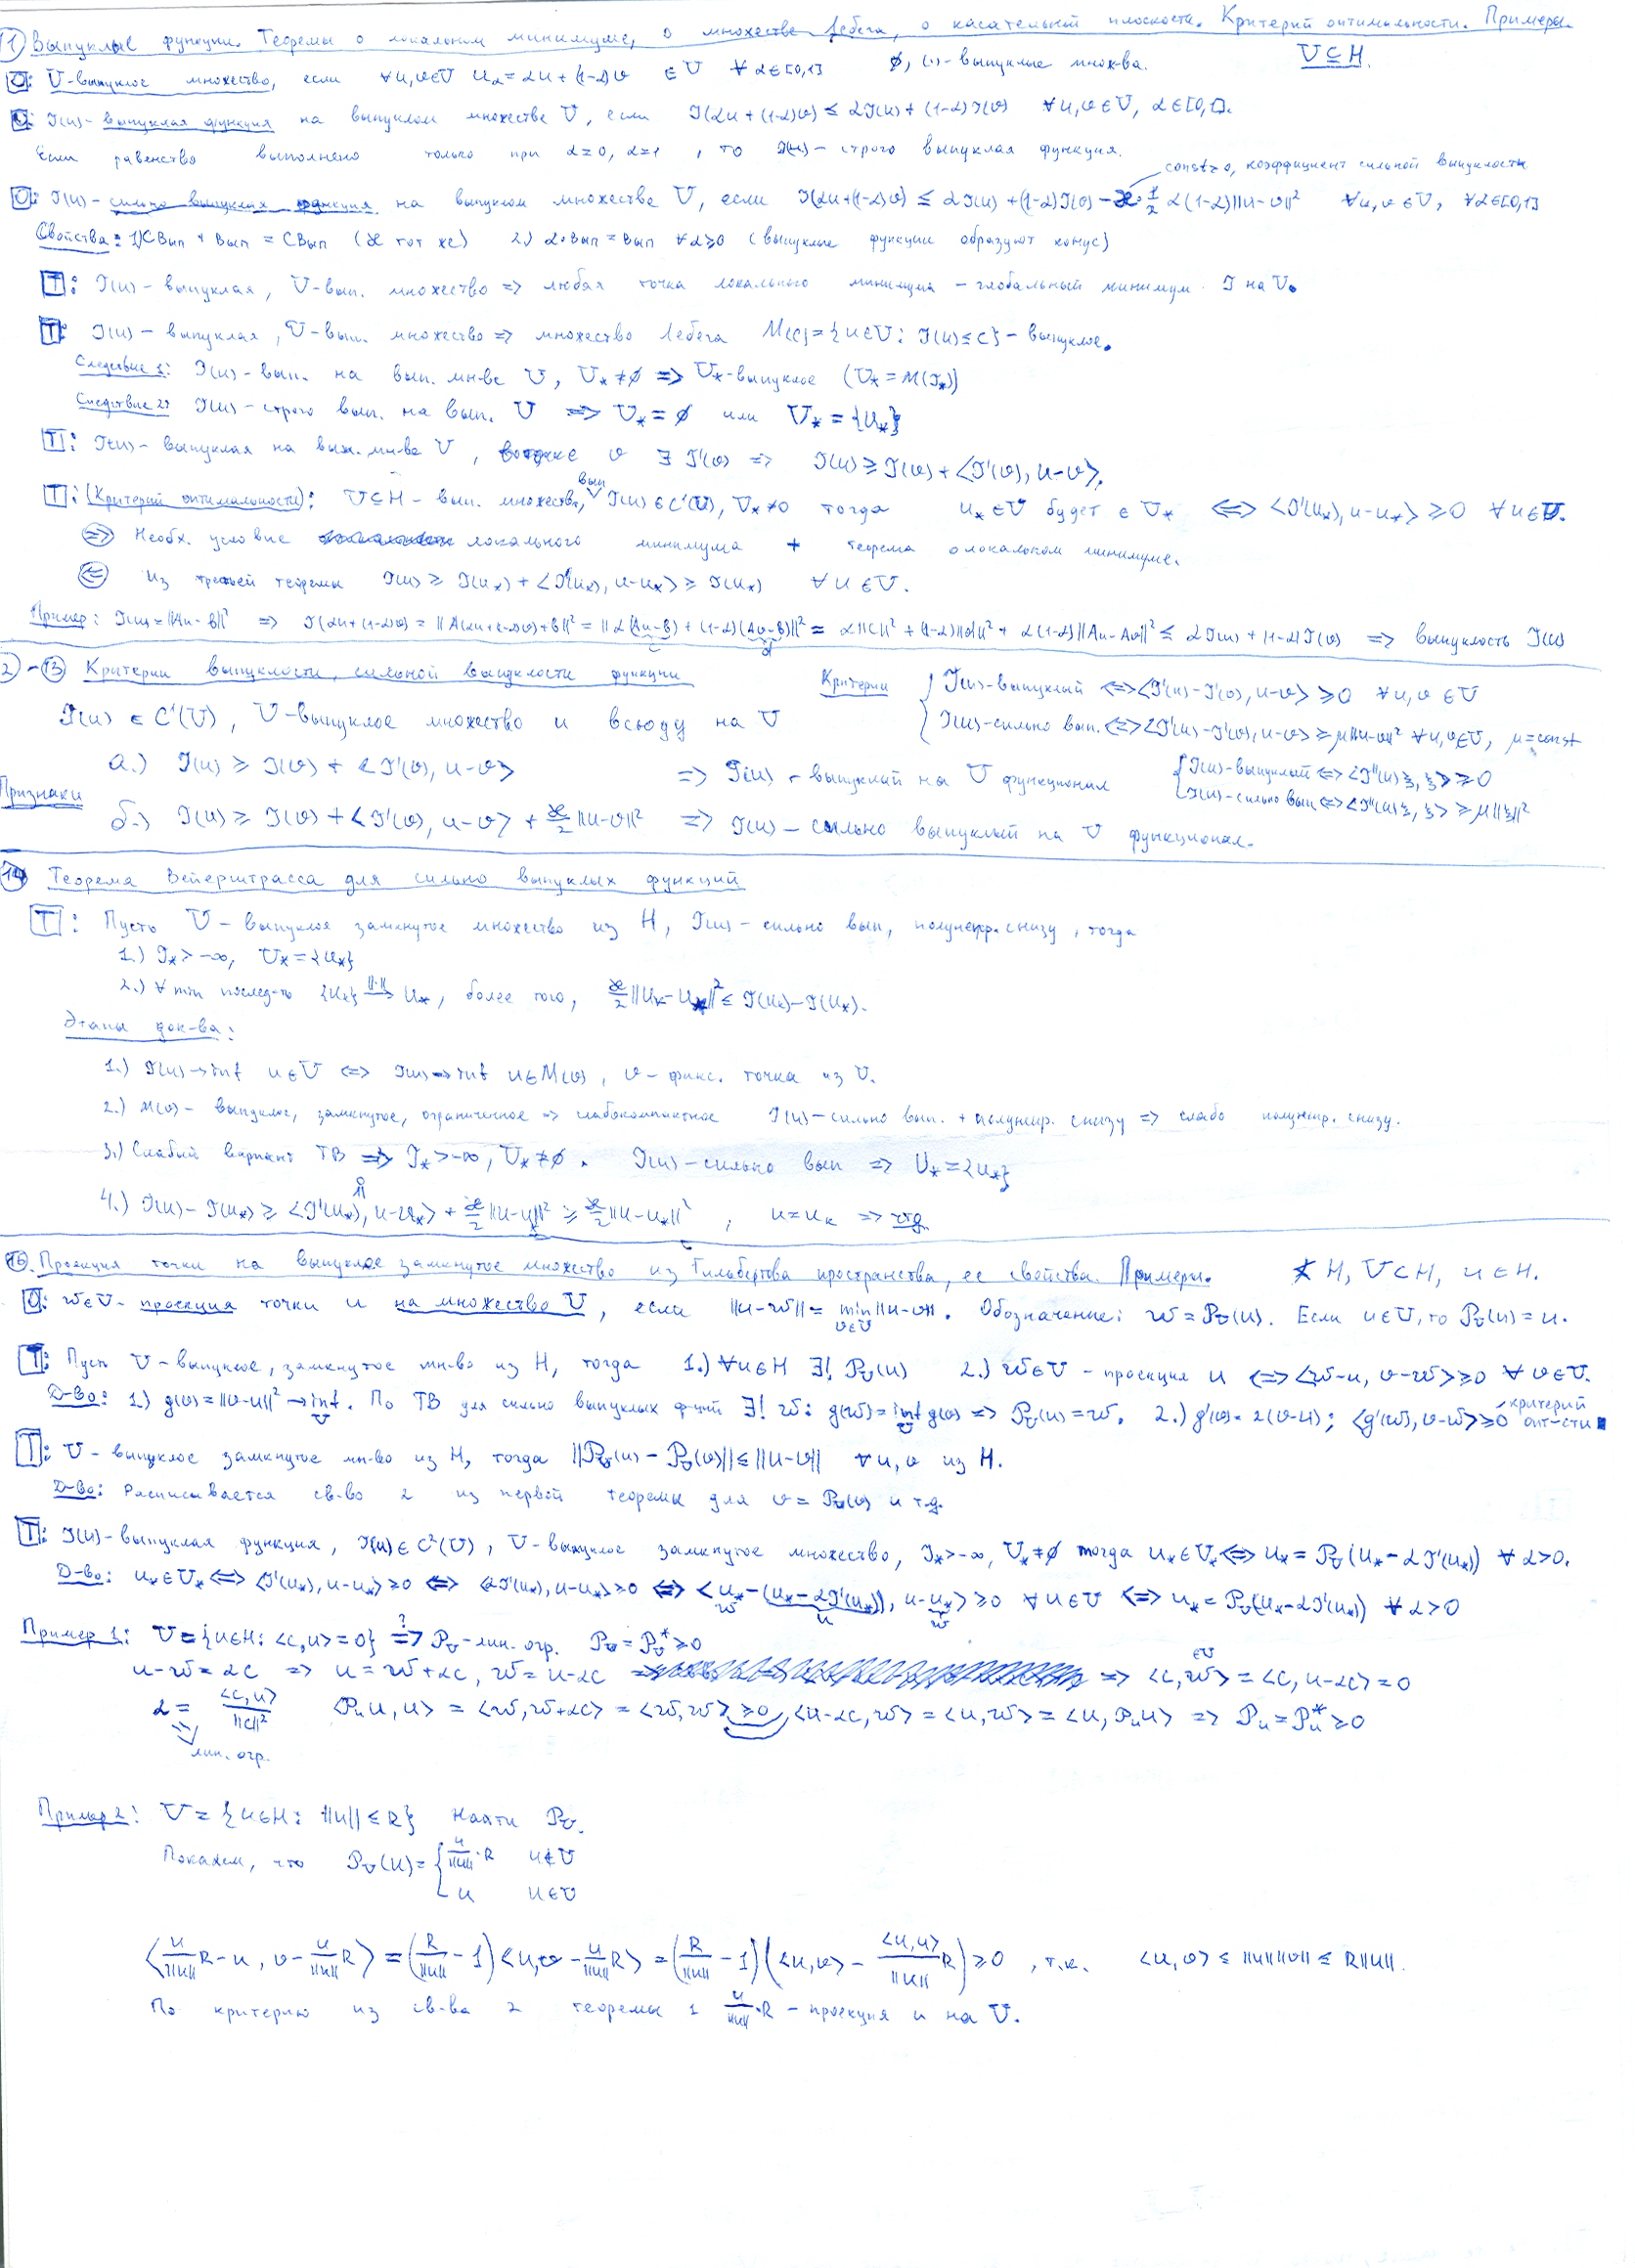 11) Выпуклые функции. Теоремы о локальном минимуме, о множестве Лебега, о касательной плоскости. Критерий оптимальности. Примеры.
U ⊆ H.
О: U-выпуклое множество, если ∀u,v∈U u_α = αu+(1-α)v ∈ U ∀α∈[0,1] ∅, {·}-выпуклые множ-ва.
О: J(u)- выпуклая функция на выпуклом множестве U, если J(αu+(1-α)v) ≤ αJ(u)+(1-α)J(v) ∀u,v∈U, α∈[0,1].
Если равенство выполнено только при α=0, α=1, то J(u)- строго выпуклая функция.
const>0, коэффициент сильной выпуклости
О: J(u)- сильно выпуклая функция на выпуклом множестве U, если J(αu+(1-α)v) ≤ αJ(u)+(1-α)J(v) - ϰ·1/2 α(1-α)||u-v||² ∀u,v∈U, ∀α∈[0,1]
Свойства: 1) СВып + Вып = СВып (ϰ тот же) 2) α·Вып = Вып ∀α≥0 (выпуклые функции образуют конус)
Т: J(u)- выпуклая, U-вып. множество => любая точка локального минимума - глобальный минимум J на U.
Т: J(u) - выпуклая, U-вып. множество => множество Лебега M(c)={u∈U: J(u)≤c} - выпуклое.
Следствие 1: J(u)-вып. на вып. мн-ве U, U*≠∅ => U*-выпуклое (U*=M(J*))
Следствие 2: J(u)-строго вып. на вып. U => U*=∅ или U*={u*}
Т: J(u)- выпуклая на вып. мн-ве U, в точке v ∃ J'(v) => J(u) ≥ J(v)+<J'(v), u-v>.
Т: (Критерий оптимальности): U⊆H - вып. множество, вып J(u)∈C¹(U), U*≠∅ тогда u*∈U будет ∈ U* <=> <J'(u*), u-u*> ≥0 ∀u∈U.
=> Необх. условие локального минимума + теорема о локальном минимуме.
<= Из третьей теоремы J(u) ≥ J(u*)+<J'(u*), u-u*> ≥ J(u*) ∀u∈U.
Пример: J(u)=||Au-b||² => J(αu+(1-α)v) = ||A(αu+(1-α)v)+b||² = ||α(Au-b)+(1-α)(Av-b)||² = α||c||²+(1-α)||d||²+α(1-α)||Au-Av||² ≤ αJ(u)+(1-α)J(v) => выпуклость J(u)
c d
2)-13) Критерии выпуклости, сильной выпуклости функции
Критерии { J(u)-выпуклый <=> <J'(u)-J'(v), u-v> ≥0 ∀u,v∈U
J(u)-сильно вып. <=> <J'(u)-J'(v), u-v> ≥ μ||u-v||² ∀u,v∈U, μ=const
J(u)∈C¹(U), U-выпуклое множество и всюду на U
Признаки
а.) J(u) ≥ J(v)+<J'(v), u-v> => J(u) - выпуклый на U функционал
{ J(u)-выпуклый <=> <J''(u)ξ, ξ> ≥0
J(u)-сильно вып <=> <J''(u)ξ, ξ> ≥ μ||ξ||²
б.) J(u) ≥ J(v)+<J'(v), u-v>+ϰ/2||u-v||² => J(u) - сильно выпуклый на U функционал.
14) Теорема Вейерштрасса для сильно выпуклых функций
Т: Пусть U - выпуклое замкнутое множество из H, J(u)- сильно вып, полунепр. снизу, тогда
1.) J*>-∞, U*={u*}
2.) ∀ min послед-ть {u_k} -||·||-> u*, более того, ϰ/2||u_k-u*||² ≤ J(u_k)-J(u*).
Этапы док-ва:
1.) J(u)→inf u∈U <=> J(u)→inf u∈M(v), v-фикс. точка из U.
2.) M(v)- выпуклое, замкнутое, ограниченное => слабокомпактное J(u)-сильно вып. + полунепр. снизу => слабо полунепр. снизу.
3.) Слабый вариант ТВ => J*>-∞, U*≠∅. J(u)-сильно вып => U*={u*}
4.) J(u)-J(u*) ≥ <J'(u*), u-u*>+ϰ/2||u-u*||² ≥ ϰ/2||u-u*||², u=u_k => чтд
16. Проекция точки на выпуклое замкнутое множество из Гильбертова пространства, ее свойства. Примеры. H, U⊂H, u∈H.
О: w∈U- проекция точки u на множество U, если ||u-w||=min||u-v||. Обозначение: w=P_U(u). Если u∈U, то P_U(u)=u.
v∈U
Т: Пусть U-выпуклое, замкнутое мн-во из H, тогда 1.) ∀u∈H ∃! P_U(u) 2.) w∈U - проекция u <=> <w-u, v-w>≥0 ∀v∈U.
Д-во: 1.) g(v)=||v-u||²→inf. По ТВ для сильно выпуклых ф-ций ∃! w: g(w)=inf g(v) => P_U(u)=w. 2.) g'(v)=2(v-u); <g'(w), v-w>≥0 критерий опт-сти ■
Т: U- выпуклое замкнутое мн-во из H, тогда ||P_U(u)-P_U(v)||≤||u-v|| ∀u,v из H.
Д-во: Расписывается св-во 2 из первой теоремы для v=P_U(v) и т.д.
Т: J(u)-выпуклая функция, J(u)∈C²(U), U-выпуклое замкнутое множество, J*>-∞, U*≠∅ тогда u*∈U* <=> u*=P_U(u*-αJ'(u*)) ∀α>0.
Д-во: u*∈U* <=> <J'(u*), u-u*>≥0 <=> <αJ'(u*), u-u*>≥0 <=> <u*-(u*-αJ'(u*)), u-u*>≥0 ∀u∈U <=> u*=P_U(u*-αJ'(u*)) ∀α>0
w u w
Пример 1: U={u∈H: <c,u>=0} ?=> P_U-лин. огр. P_U=P_U*≥0
u-w=αc => u=w+αc, w=u-αc => <c,w>=<c,u-αc>=0
∈U
α=<c,u>/||c||² <P_u u,u>=<w,w+αc>=<w,w>≥0, <u-αc,w>=<u,w>=<u,P_u u> => P_u=P_u*≥0
лин. огр.
Пример 2: U={u∈H: ||u||≤R} Найти P_U.
Покажем, что P_U(u)={ u/||u||·R u∉U
u u∈U
<u/||u|| R-u, v-u/||u|| R>=(R/||u||-1)<u,v-u/||u|| R>=(R/||u||-1)(<u,v>-<u,u>/||u|| R)≥0, т.к. <u,v>≤||u||||v||≤R||u||.
По критерию из св-ва 2 теоремы 1 u/||u||·R - проекция u на U.